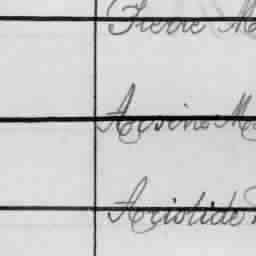 Pierre M
Arsine M
Aristide